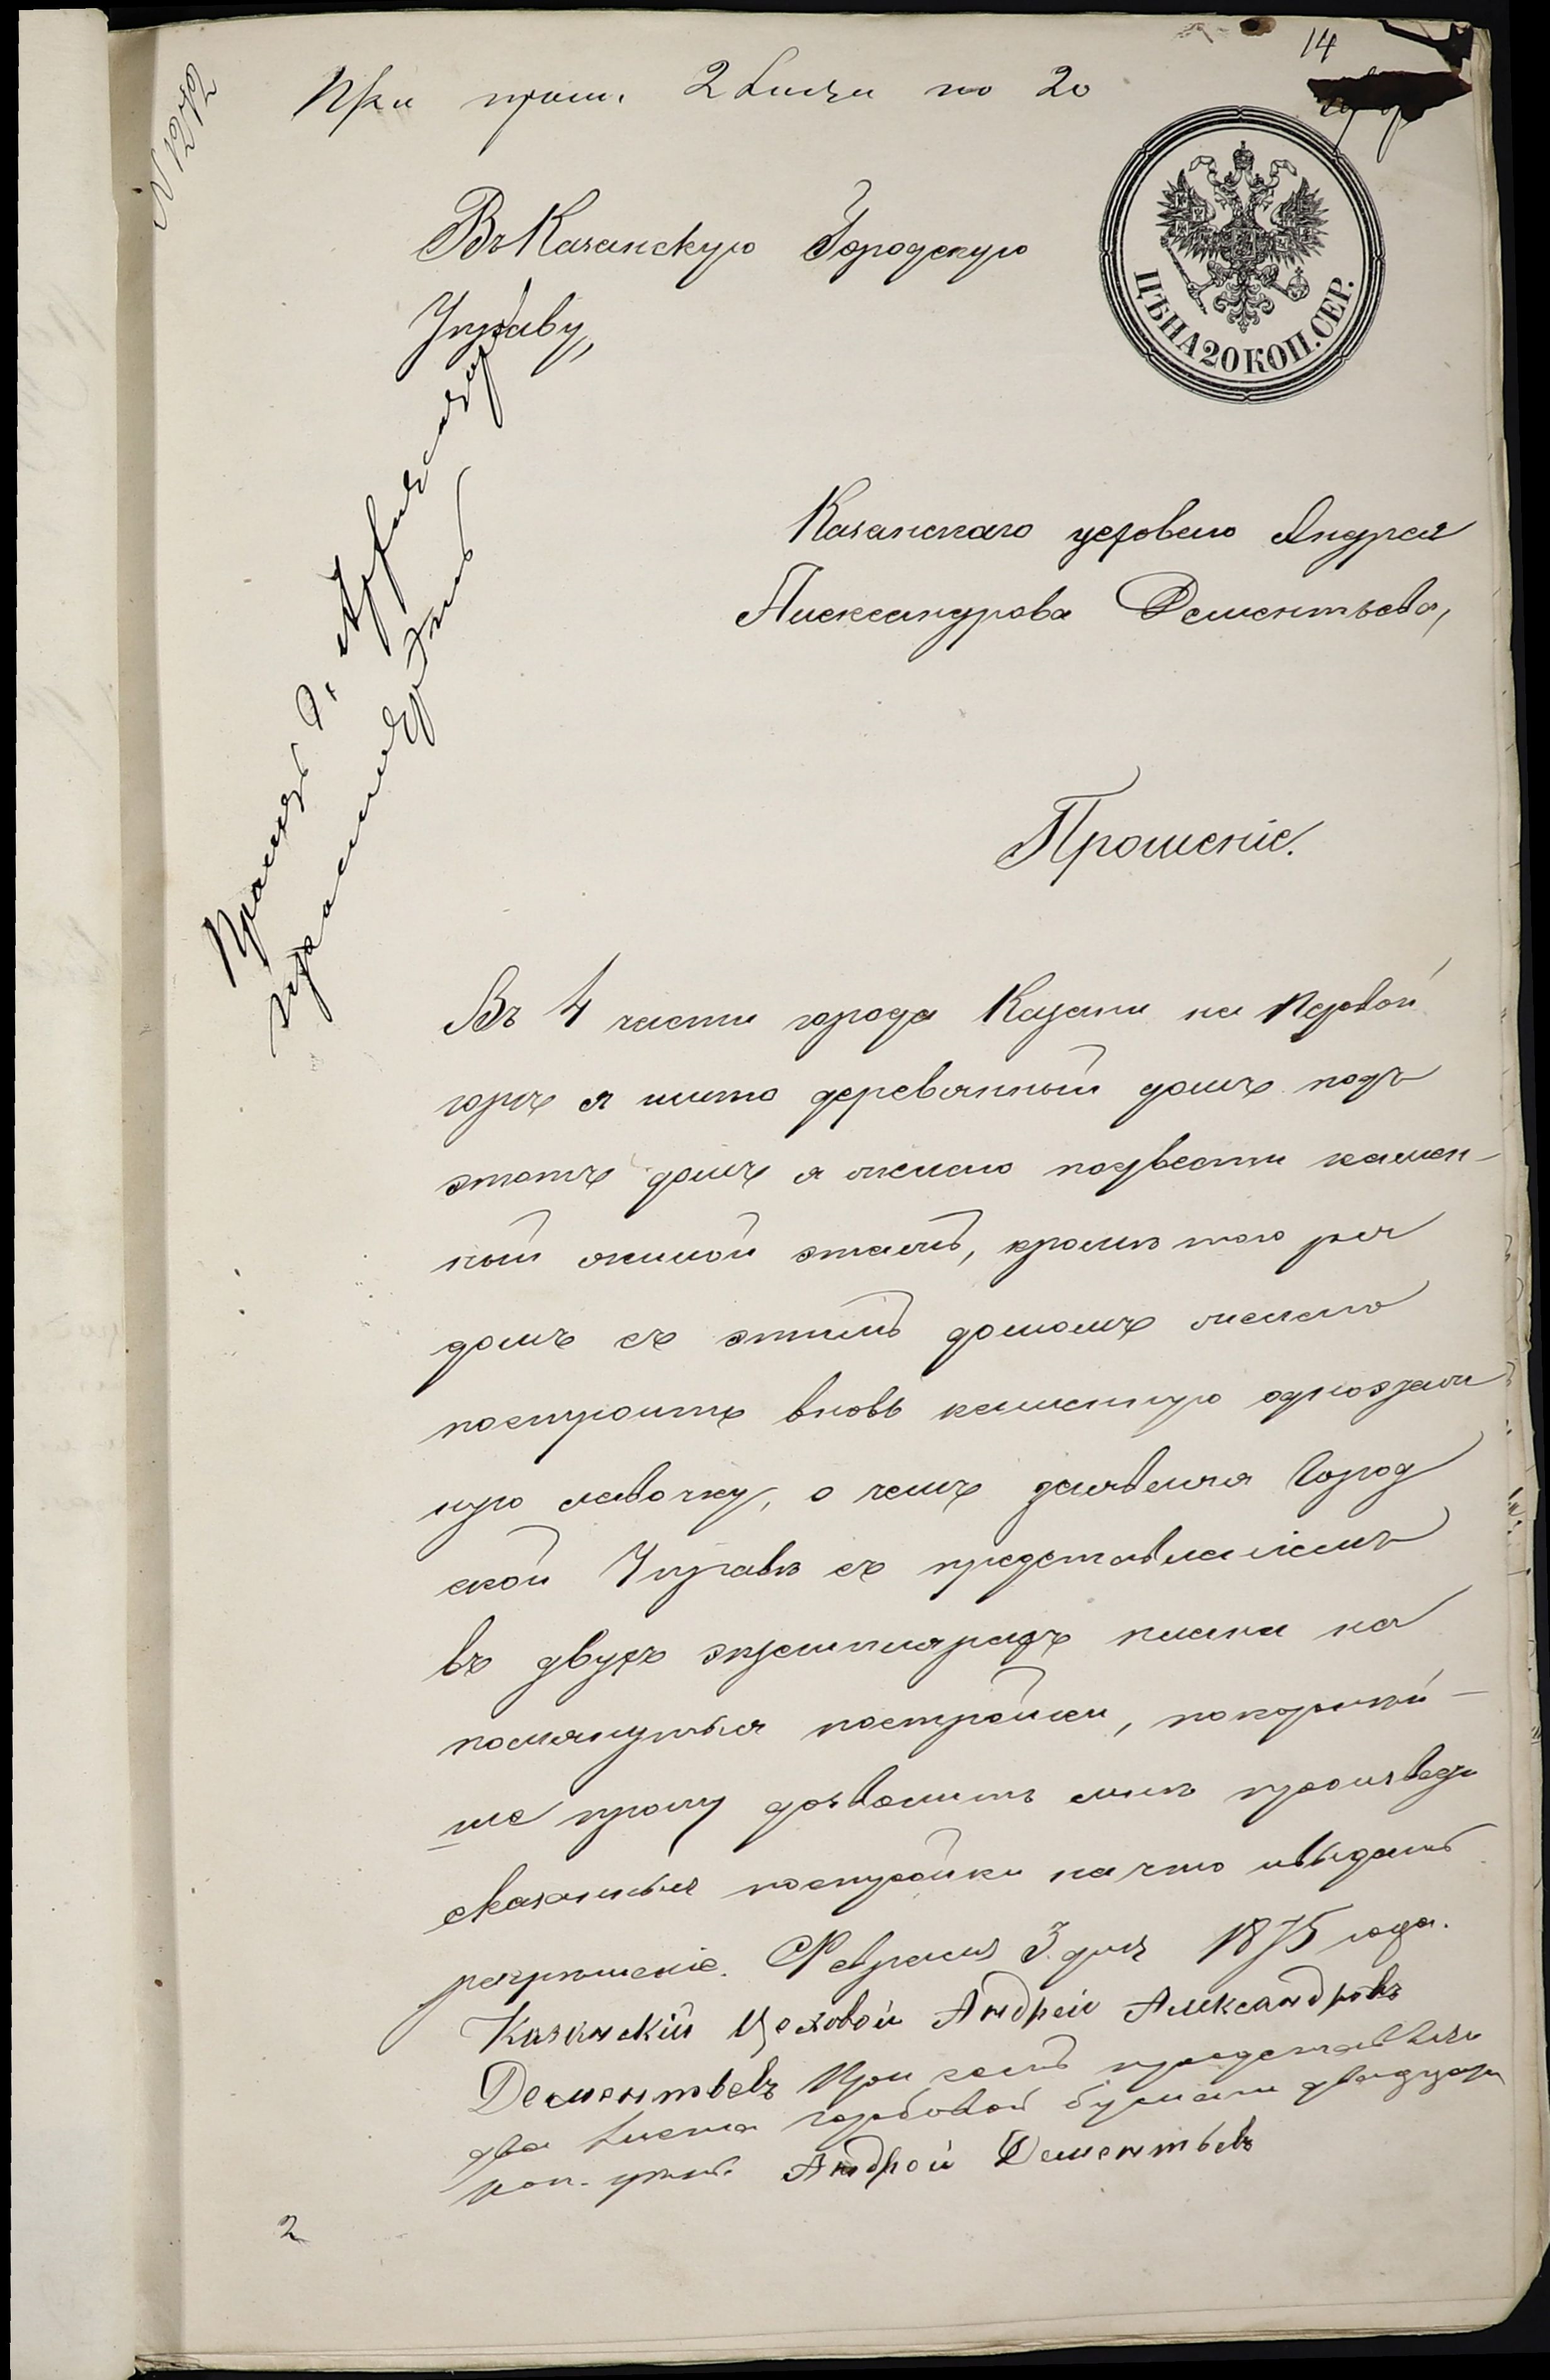 14
N 1272
При прош. 2 листа по 20
Въ Казанскую Городскую
Управу,
ЦѢНА 20 КОП. СЕР.
Казанскаго цеховаго Андрея
Александрова Дементьева,
Прошеніе.
Въ 4 части города Казани на Первой
горѣ я имѣю деревянный домъ подъ
этотъ домъ я желаю подвести камен-
ный жилой этажъ, кромѣ того ря
домъ съ этимъ домомъ желаю
построить вновь каменную одноэтаж
ную лавочку, о чемъ заявляя Город
ской Управѣ съ представленіемъ
въ двухъ экземплярахъ плана на
помянутыя постройки, покорнѣй-
ше прошу дозволить мнѣ произвед
сказанныя постройки на что и выдать
разрѣшеніе. Февраля 3 дня 1875 года.
Казанскій Цеховой Андрей Александровъ
Дементьевъ При семъ представляю
два листа гербовой бумаги двадцати
коп. цѣны. Андрей Дементьевъ
2